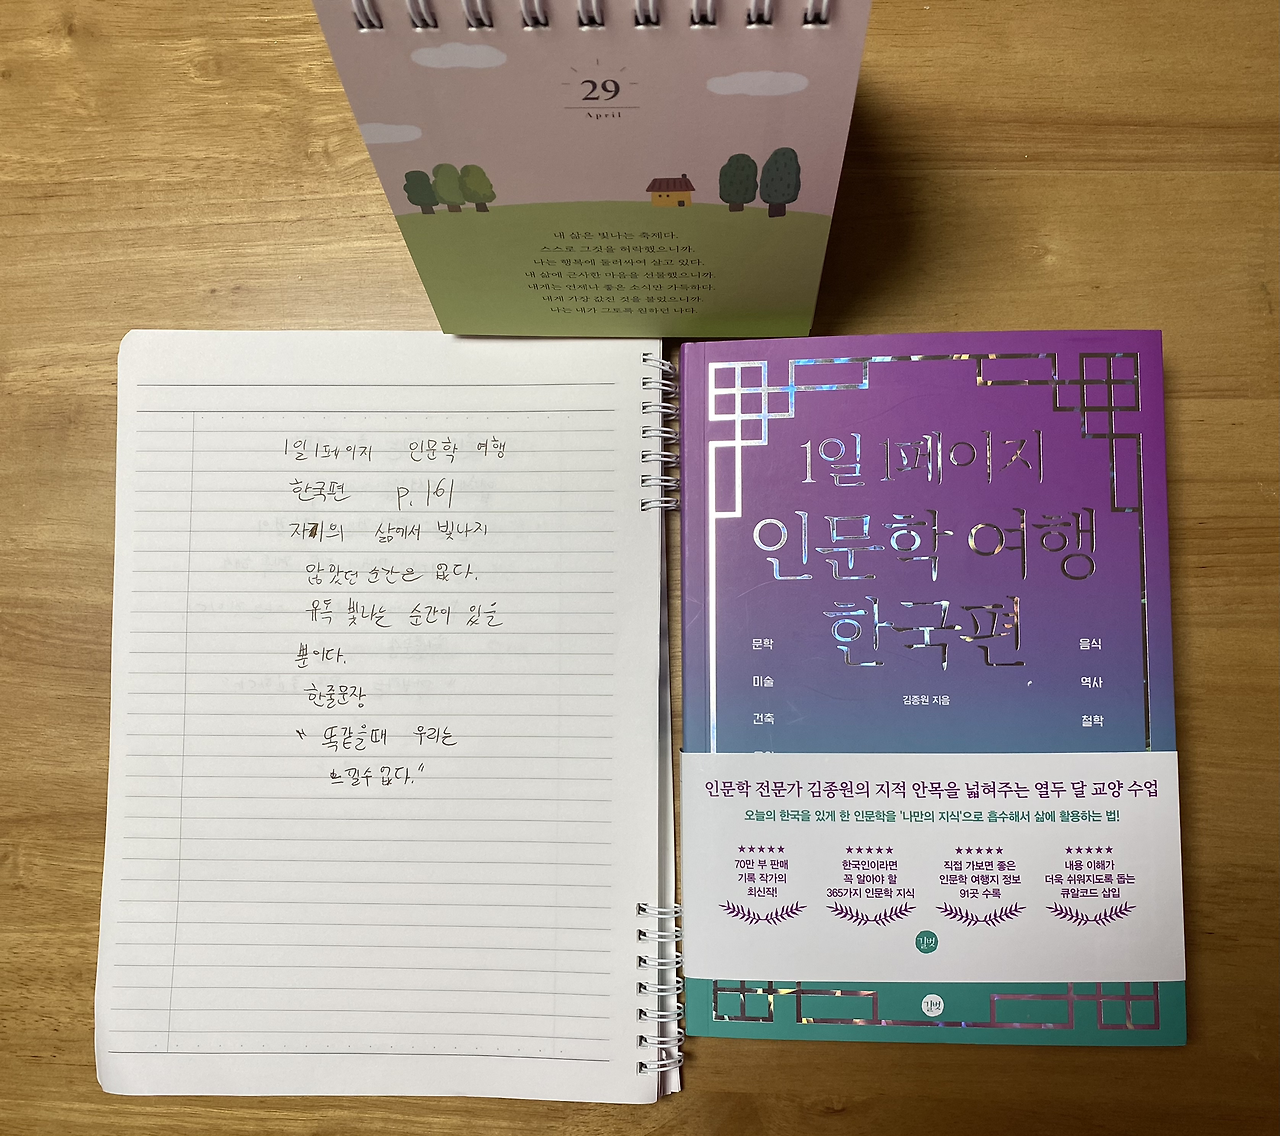 29
April
내 삶은 빛나는 축제다.
스스로 그것을 허락했으니까.
나는 행복에 둘러싸여 살고 있다.
내 삶에 근사한 마음을 선물했으니까.
내게는 언제나 좋은 소식만 가득하다.
내게 가장 값진 것을 불렀으니까.
나는 내가 그토록 원하던 나다.
1일 1페이지 인문학 여행
한국편 p.161
자기의 삶에서 빛나지
않았던 순간은 없다.
유독 빛나는 순간이 있을
뿐이다.
한줄문장
" 똑같을때 우리는
느낄수없다."
1일 1페이지
인문학 여행
한국편
문학
미술
건축
음식
역사
철학
김종원 지음
인문학 전문가 김종원의 지적 안목을 넓혀주는 열두 달 교양 수업
오늘의 한국을 있게 한 인문학을 '나만의 지식'으로 흡수해서 삶에 활용하는 법!
★★★★★
70만 부 판매
기록 작가의
최신작!
★★★★★
한국인이라면
꼭 알아야 할
365가지 인문학 지식
★★★★★
직접 가보면 좋은
인문학 여행지 정보
91곳 수록
★★★★★
내용 이해가
더욱 쉬워지도록 돕는
큐알코드 삽입
길벗
길벗